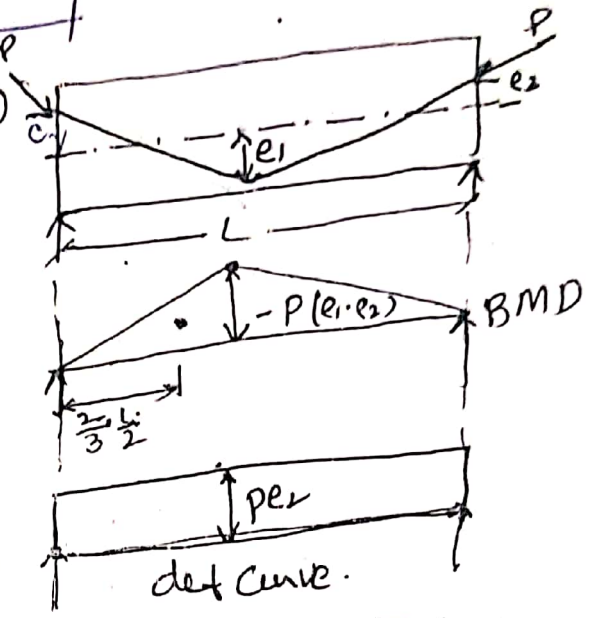 P
P
e₂
e₁
L
- P(e₁·e₂)
BMD
2/3 · L/2
pe₂
def curve.